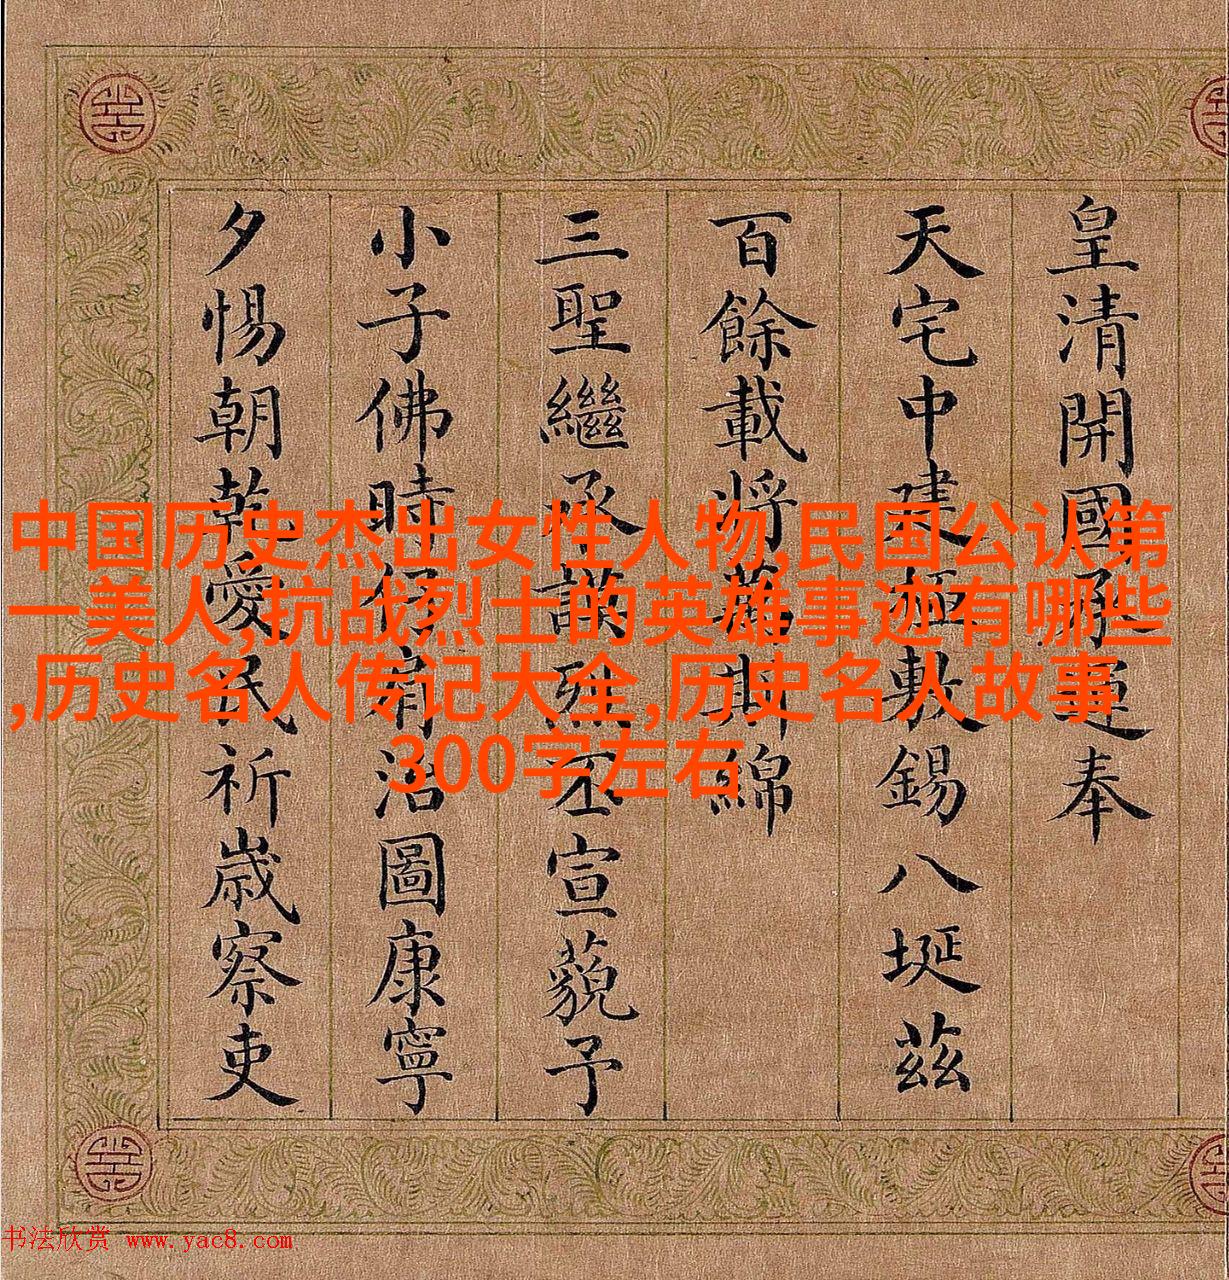 皇清開國承運奉
天宅中建極敷錫八埏茲
百餘載將萬斯綿
三聖繼承謨烈丕宣藐予
小子佛時仔肩治圖康寧
夕惕朝乾愛民祈歲察吏
中国历史杰出女性人物,民国公认第
一美人,抗战烈士的英雄事迹有哪些
,历史名人传记大全,历史名人故事
300字左右
书法欣赏 www.yac8.com